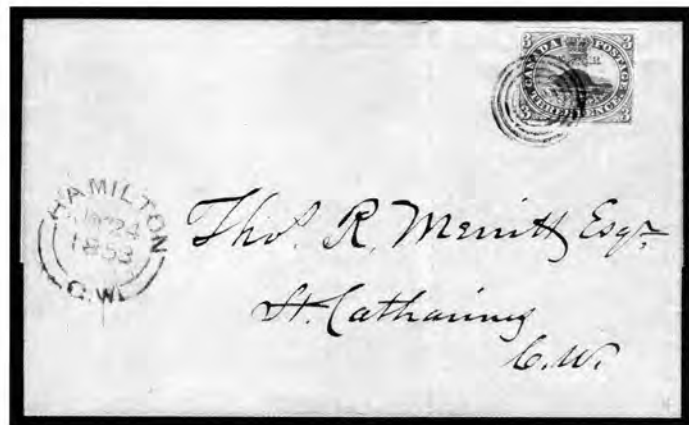 3 CANADA POSTAGE 3
3 THREE PENCE 3
HAMILTON
24
1853
C.W.
Thos. R. Merritt Esqr.
St. Catharines
C.W.